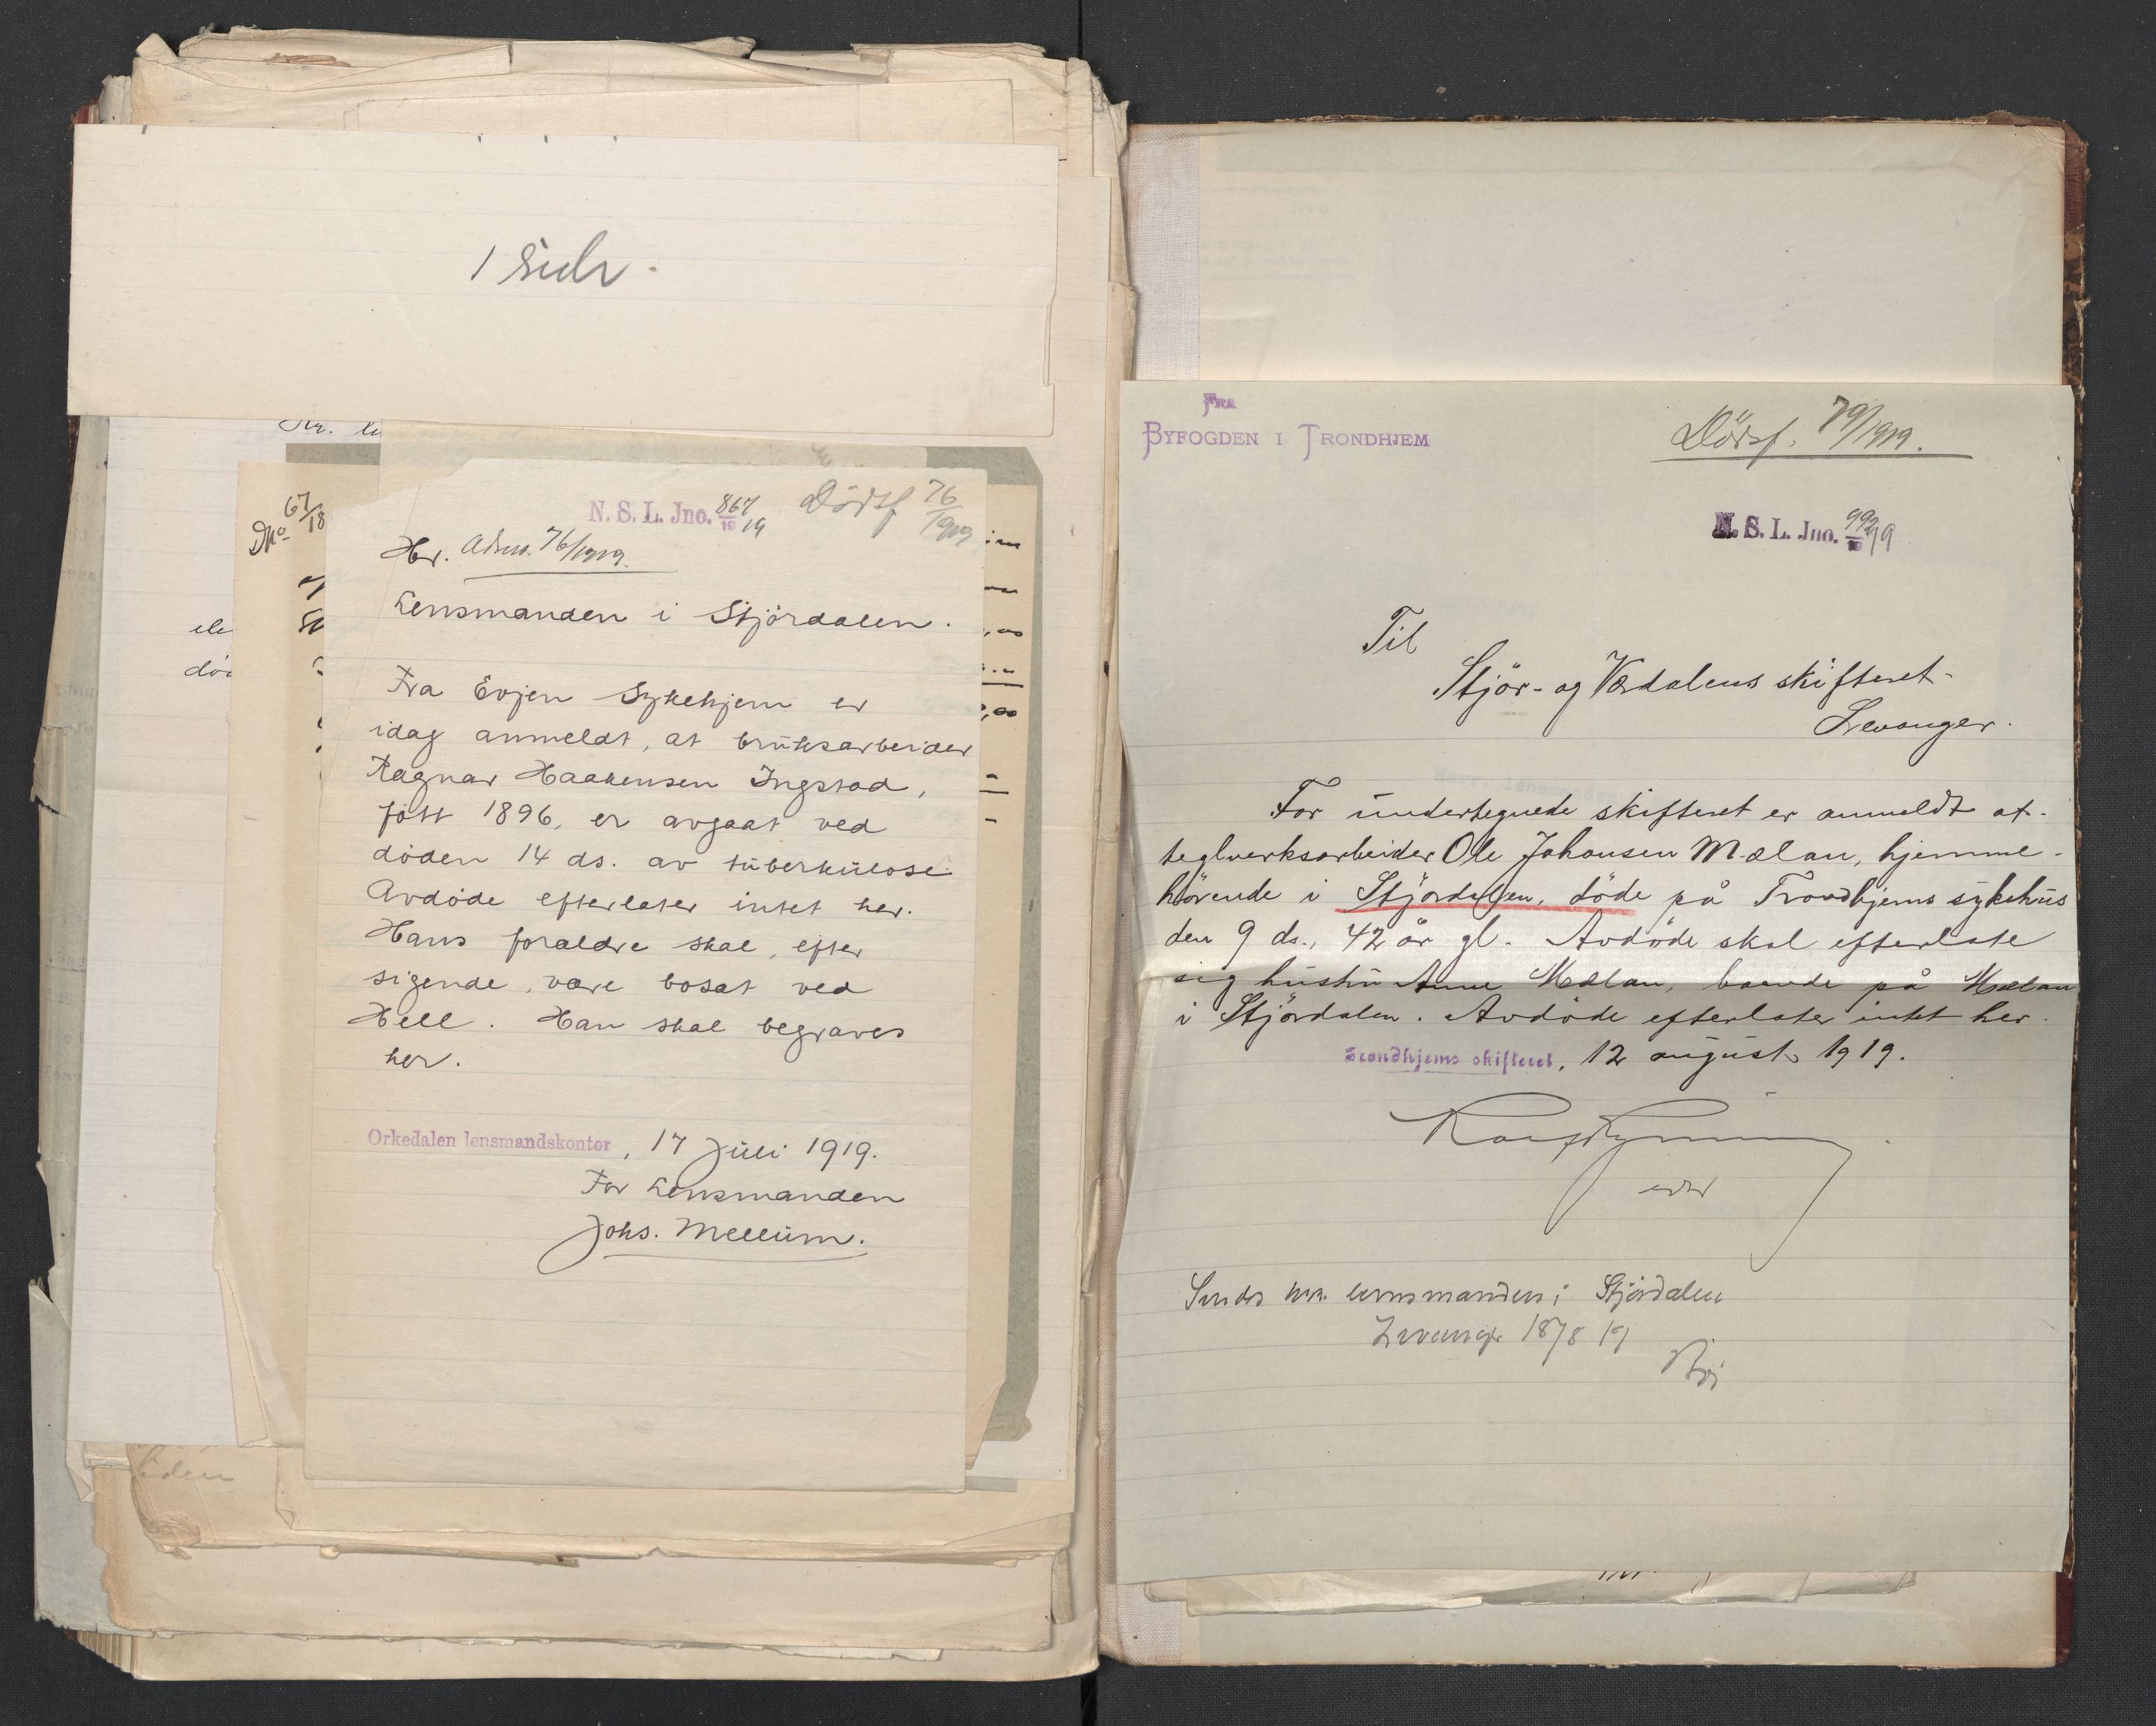 1 side.
67/18
N. S. L. Jno. 867/19
Dødsf 76/1919
Hr. Adm. 76/1919.
Lensmanden i Stjördalen.
Fra Evjen Sykehjem er
idag anmeldt, at bruksarbeider
Ragnar Haakensen Ingstad,
født 1896, er avgaat ved
döden 14 ds. av tuberkulose.
Avdøde efterlater intet her.
Hans foraldre skal, efter
sigende, være bosat ved
Hell. Han skal begraves
her.
Orkedalen lensmandskontor, 17 Juli 1919.
For Lensmanden
Johs. Mellum.
Fra
BYFOGDEN I TRONDHJEM
Dödsf. 79/1919.
N. S. L. Jno. 992/19
Til
Stjör- og Værdalens skifteret
Levanger.
For undertegnede skifteret er anmeldt at
teglverksarbeider Ole Johansen Mælan, hjemme-
hörende i Stjördalen, döde på Trondhjems sykehus
den 9 ds., 42 år gl. Avdöde skal efterlate
sig hustru Anne Mælan, boende på Mælan
i Stjördalen. Avdöde efterlater intet her.
Trondhjems skifteret, 12 august 1919.
Sendes hr. lensmanden i Stjørdalen
Levanger 18/8 19